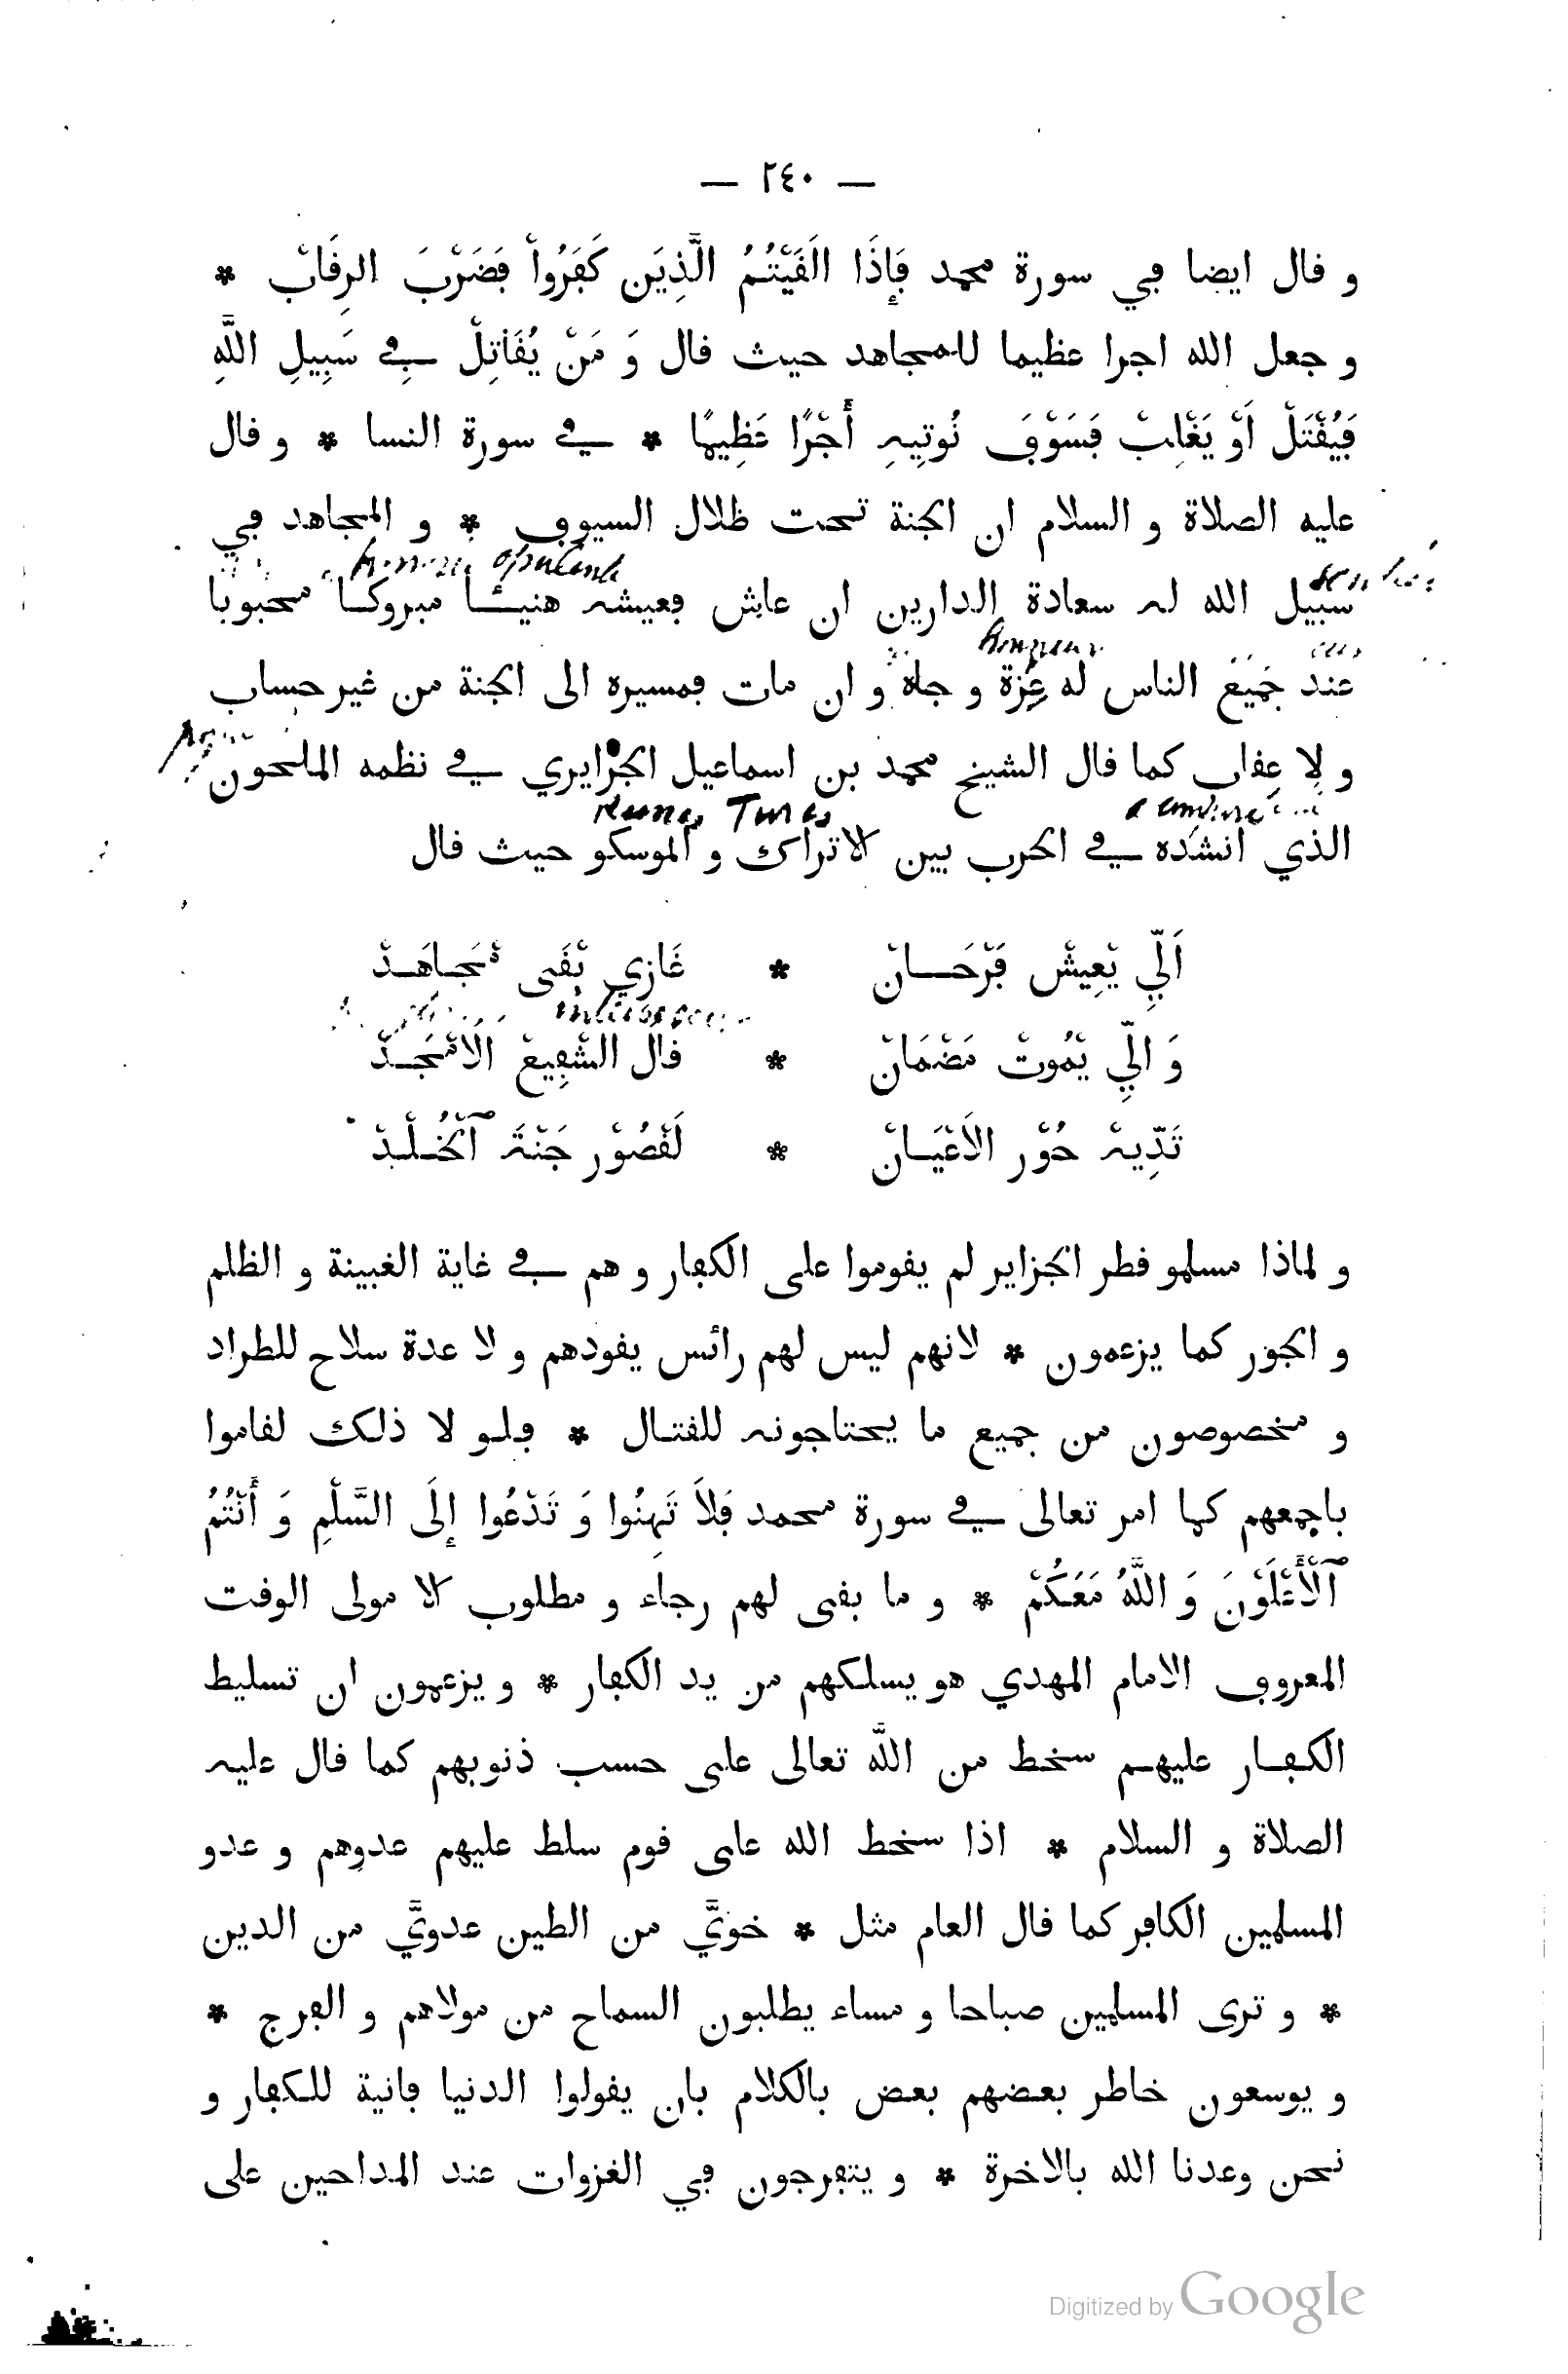 — ٢٤٠ —
و قال ايضا في سورة محمد فَإِذَا الَقَيْتُمُ الَّذِيَن كَفَرُواْ فَضَرْبَ الرِقَابْ *
و جعل الله اجرا عظيما للمجاهد حيث قال وَ مَنْ يُقَاتِلْ فِي سَبِيلِ اللَّهِ
فَيُقْتَلْ اَوْ يَغْلِبْ فَسَوْفَ نُوتِيهِ أَجْرًا عَظِيمًا * في سورة النسا * و قال
عليه الصلاة و السلام ان الجنة تحت ظلال السيوف * و المجاهد في
سبيل الله له سعادة الدارين ان عاش فعيشه هنيئا مبروكا محبوبا
عند جَمِيَع الناس له عِزة و جاه و ان مات فمسيره الى الجنة من غير حساب
و لا عقاب كما قال الشيخ محمد بن اسماعيل الجزايري في نظمه الملحون
الذي انشده في الحرب بين الاتراك و الموسكو حيث قال
اَلِّي يْعِيشْ فَرْحَانْ * غَازِي يَبْقَى مْجَاهَدْ
وَ الِّي يْمُوتْ مَضْمَانْ * قَالَ الشْفِيعْ الَامْجَدْ
تَدِّيهْ حُوْر الَاعْيَانْ * لَقْصُوْر جَنْةَ ٱلْخُلْدْ
و لماذا مسلمو قطر الجزاير لم يقوموا على الكفار و هم في غاية الغبينة و الظلم
و الجور كما يزعمون * لانهم ليس لهم رائس يقودهم و لا عدة سلاح للطراد
و مخصوصون من جميع ما يحتاجونه للقتال * فلو لا ذلك لقاموا
باجمعهم كما امر تعالى في سورة محمد فَلاَ تَهِنُوا وَ تَدْعُوا إِلَى السَّلْمِ وَ أَنْتُمُ
ٱلْأَعْلَوْنَ وَ اللَّهُ مَعَكُمْ * و ما بقى لهم رجاء و مطلوب الا مولى الوقت
المعروف الامام المهدي هو يسلكهم من يد الكفار * و يزعمون ان تسليط
الكفار عليهم سخط من اللَّه تعالى على حسب ذنوبهم كما قال عليه
الصلاة و السلام * اذا سخط الله على قوم سلط عليهم عدوهم و عدو
المسلمين الكافر كما قال العام مثل * خويَّ من الطين عدويَّ من الدين
* و ترى المسلمين صباحا و مساء يطلبون السماح من مولاهم و الفرج *
و يوسعون خاطر بعضهم بعض بالكلام بان يقولوا الدنيا فانية للكفار و
نحن وعدنا الله بالاخرة * و يتفرجون في الغزوات عند المداحين على
Digitized by Google